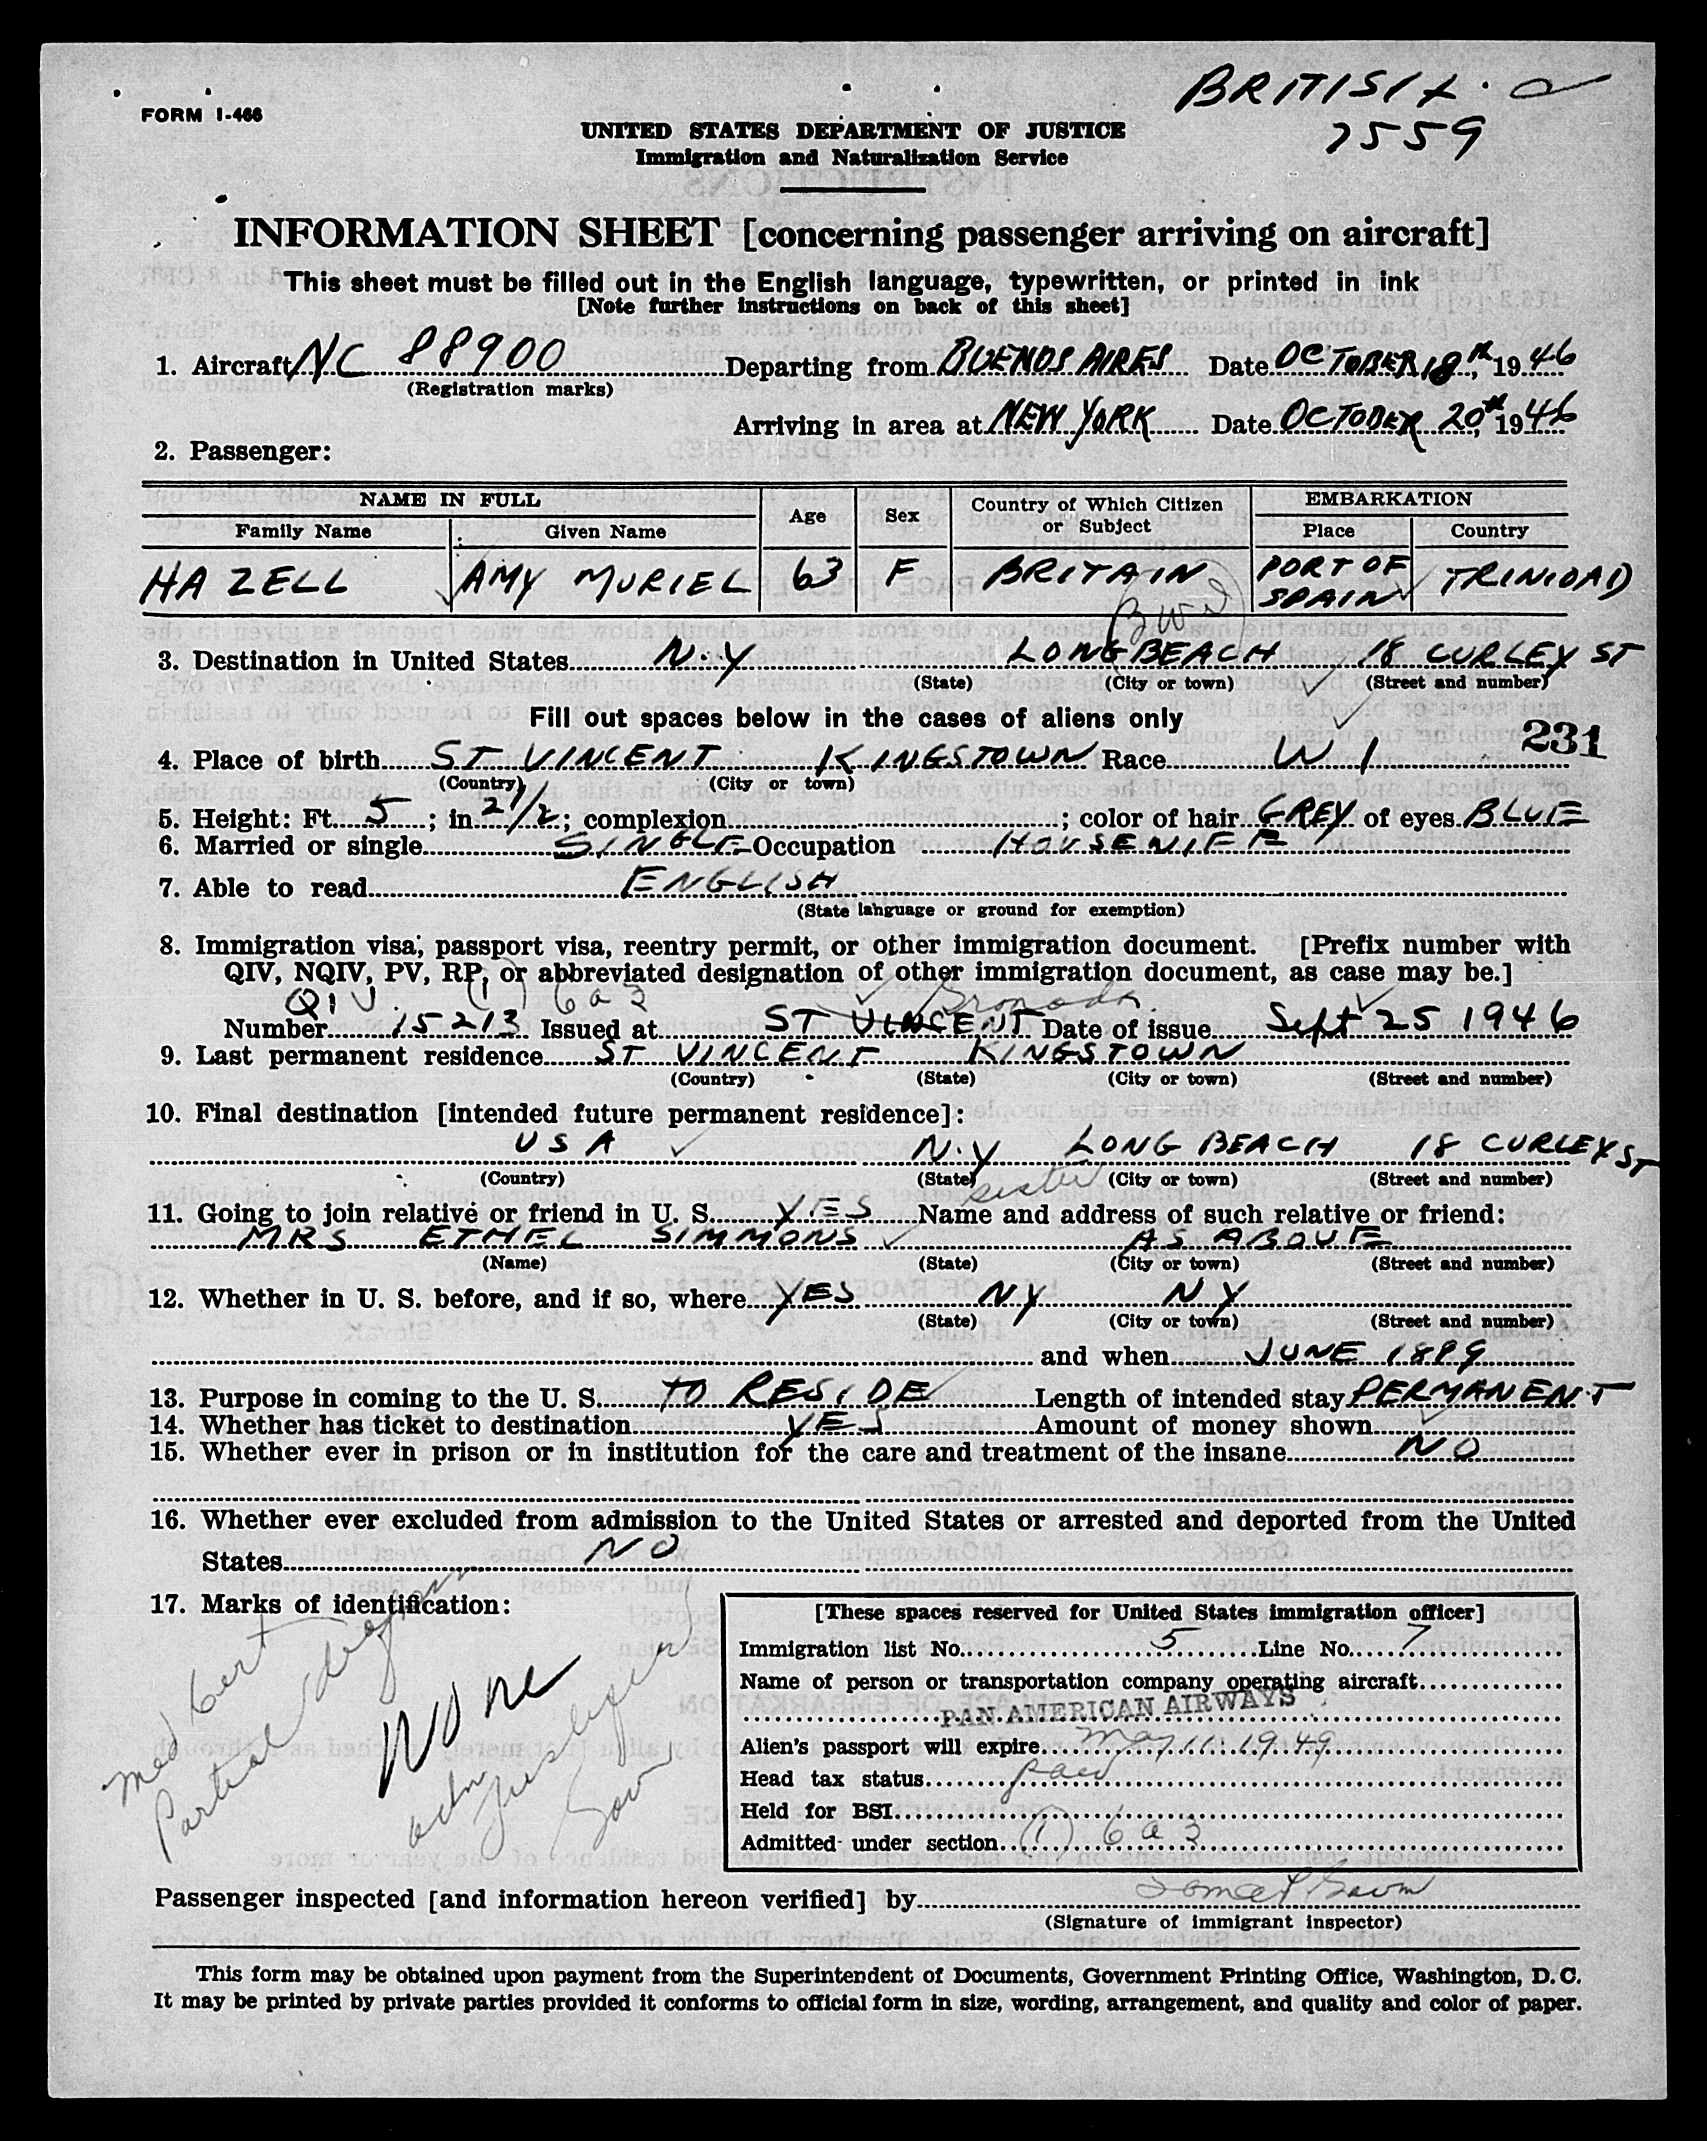 BRITISH.
FORM I-466
7559
UNITED STATES DEPARTMENT OF JUSTICE
Immigration and Naturalization Service
INFORMATION SHEET [concerning passenger arriving on aircraft]
This sheet must be filled out in the English language, typewritten, or printed in ink
[Note further instructions on back of this sheet]
1. Aircraft NC 88900 Departing from BUENOS AIRES Date OCTOBER 18th, 1946
(Registration marks)
Arriving in area at NEW YORK Date OCTOBER 20th, 1946
2. Passenger:
NAME IN FULL Age Sex Country of Which Citizen or Subject EMBARKATION
Family Name Given Name Place Country
HAZELL AMY MURIEL 63 F BRITAIN PORT OF SPAIN TRINIDAD
BWI
3. Destination in United States N.Y LONG BEACH 18 CURLEY ST
(State) (City or town) (Street and number)
Fill out spaces below in the cases of aliens only
231
4. Place of birth ST VINCENT KINGSTOWN Race W I
(Country) (City or town)
5. Height: Ft. 5; in. 2 1/2; complexion; color of hair GREY of eyes BLUE
6. Married or single SINGLE Occupation HOUSEWIFE
7. Able to read ENGLISH
(State language or ground for exemption)
8. Immigration visa, passport visa, reentry permit, or other immigration document. [Prefix number with
QIV, NQIV, PV, RP, or abbreviated designation of other immigration document, as case may be.]
QIV (1) 6 a 3 Grenada
Number 15213 Issued at ST VINCENT Date of issue Sept 25 1946
9. Last permanent residence ST VINCENT KINGSTOWN
(Country) (State) (City or town) (Street and number)
10. Final destination [intended future permanent residence]:
USA N.Y LONG BEACH 18 CURLEY ST
(Country) (State) (City or town) (Street and number)
sister
11. Going to join relative or friend in U. S. YES Name and address of such relative or friend:
MRS ETHEL SIMMONS AS ABOVE
(Name) (State) (City or town) (Street and number)
12. Whether in U. S. before, and if so, where YES NY NY
(State) (City or town) (Street and number)
and when JUNE 1889
13. Purpose in coming to the U. S. TO RESIDE Length of intended stay PERMANENT
14. Whether has ticket to destination YES Amount of money shown
15. Whether ever in prison or in institution for the care and treatment of the insane NO
16. Whether ever excluded from admission to the United States or arrested and deported from the United
States NO
17. Marks of identification:
Med Cert
Partial
None
[These spaces reserved for United States immigration officer]
Immigration list No. 5 Line No. 7
Name of person or transportation company operating aircraft
PAN AMERICAN AIRWAYS
Alien's passport will expire May 11 1949
Head tax status paid
Held for BSI
Admitted under section (1) 6 a 3
Passenger inspected [and information hereon verified] by
(Signature of immigrant inspector)
This form may be obtained upon payment from the Superintendent of Documents, Government Printing Office, Washington, D. C.
It may be printed by private parties provided it conforms to official form in size, wording, arrangement, and quality and color of paper.